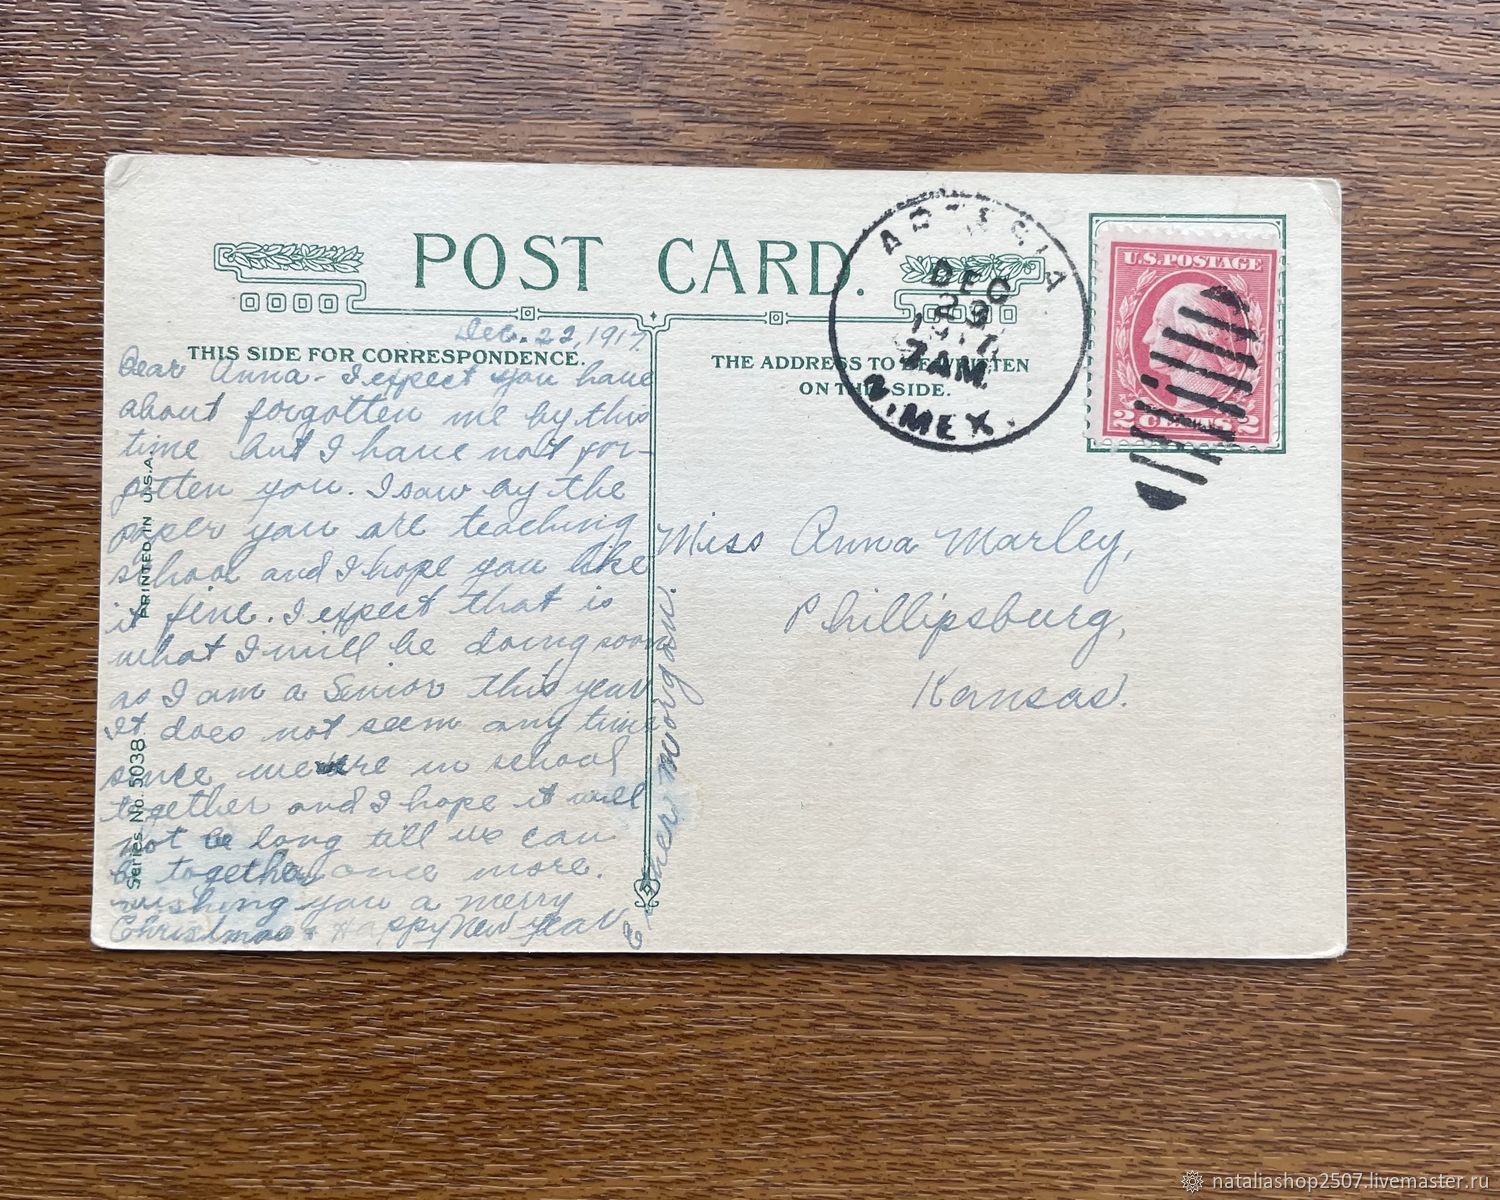 POST CARD.
Dec. 22, 1917
THIS SIDE FOR CORRESPONDENCE.
Dear Anna - I expect you have
about forgotten me by this
time but I have not for-
gotten you. I saw by the
paper you are teaching
school and I hope you like
it fine. I expect that is
what I will be doing soon
as I am a Senior this year
It does not seem any time
since we were in school
together and I hope it will
not be long till we can
be together once more.
wishing you a merry
Christmas & Happy New Year
Morgan.
PRINTED IN U.S.A.
Series No. 5038
THE ADDRESS TO BE WRITTEN
ON THIS SIDE.
DEC
1917
7 AM
N. MEX.
U.S. POSTAGE
2 CENTS 2
Miss Anna Marley,
Phillipsburg,
Kansas.
nataliashop2507.livemaster.ru